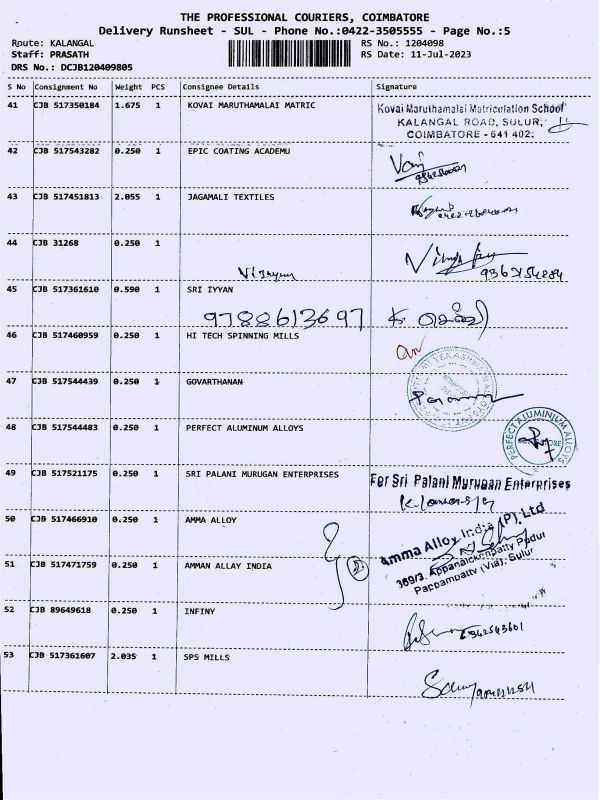 THE PROFESSIONAL COURIERS, COIMBATORE
Delivery Runsheet - SUL - Phone No.:0422-3505555 - Page No.:5
Route: KALANGAL RS No.: 1204098
Staff: PRASATH RS Date: 11-Jul-2023
DRS No.: DCJB120409805
S No Consignment No Weight PCS Consignee Details Signature
41 CJB 517350184 1.675 1 KOVAI MARUTHAMALAI MATRIC
Kovai Maruthamalai Matriculation School
KALANGAL ROAD, SULUR,
COIMBATORE - 641 402.
42 CJB 517543282 0.250 1 EPIC COATING ACADEMU
43 CJB 517451813 2.055 1 JAGAMALI TEXTILES
44 CJB 31268 0.250 1
45 CJB 517361610 0.590 1 SRI IYYAN
9788613697
46 CJB 517460959 0.250 1 HI TECH SPINNING MILLS
47 CJB 517544439 0.250 1 GOVARTHANAN
48 CJB 517544483 0.250 1 PERFECT ALUMINUM ALLOYS
PERFECT ALUMINIUM ALLOYS
49 CJB 517521175 0.250 1 SRI PALANI MURUGAN ENTERPRISES
For Sri Palani Murugan Enterprises
50 CJB 517466910 0.250 1 AMMA ALLOY
Amma Alloy India (P). Ltd
369/3, Appanaickenpatty Pudur
Pappampatty (Via), Sulur
51 CJB 517471759 0.250 1 AMMAN ALLAY INDIA
52 CJB 89649618 0.250 1 INFINY
53 CJB 517361607 2.035 1 SPS MILLS